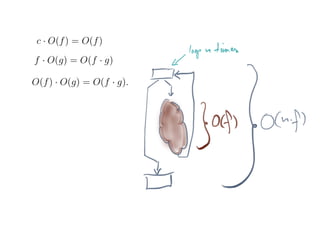 c · O(f) = O(f)
f · O(g) = O(f · g)
O(f) · O(g) = O(f · g).
loop n times
O(f)
O(n·f)